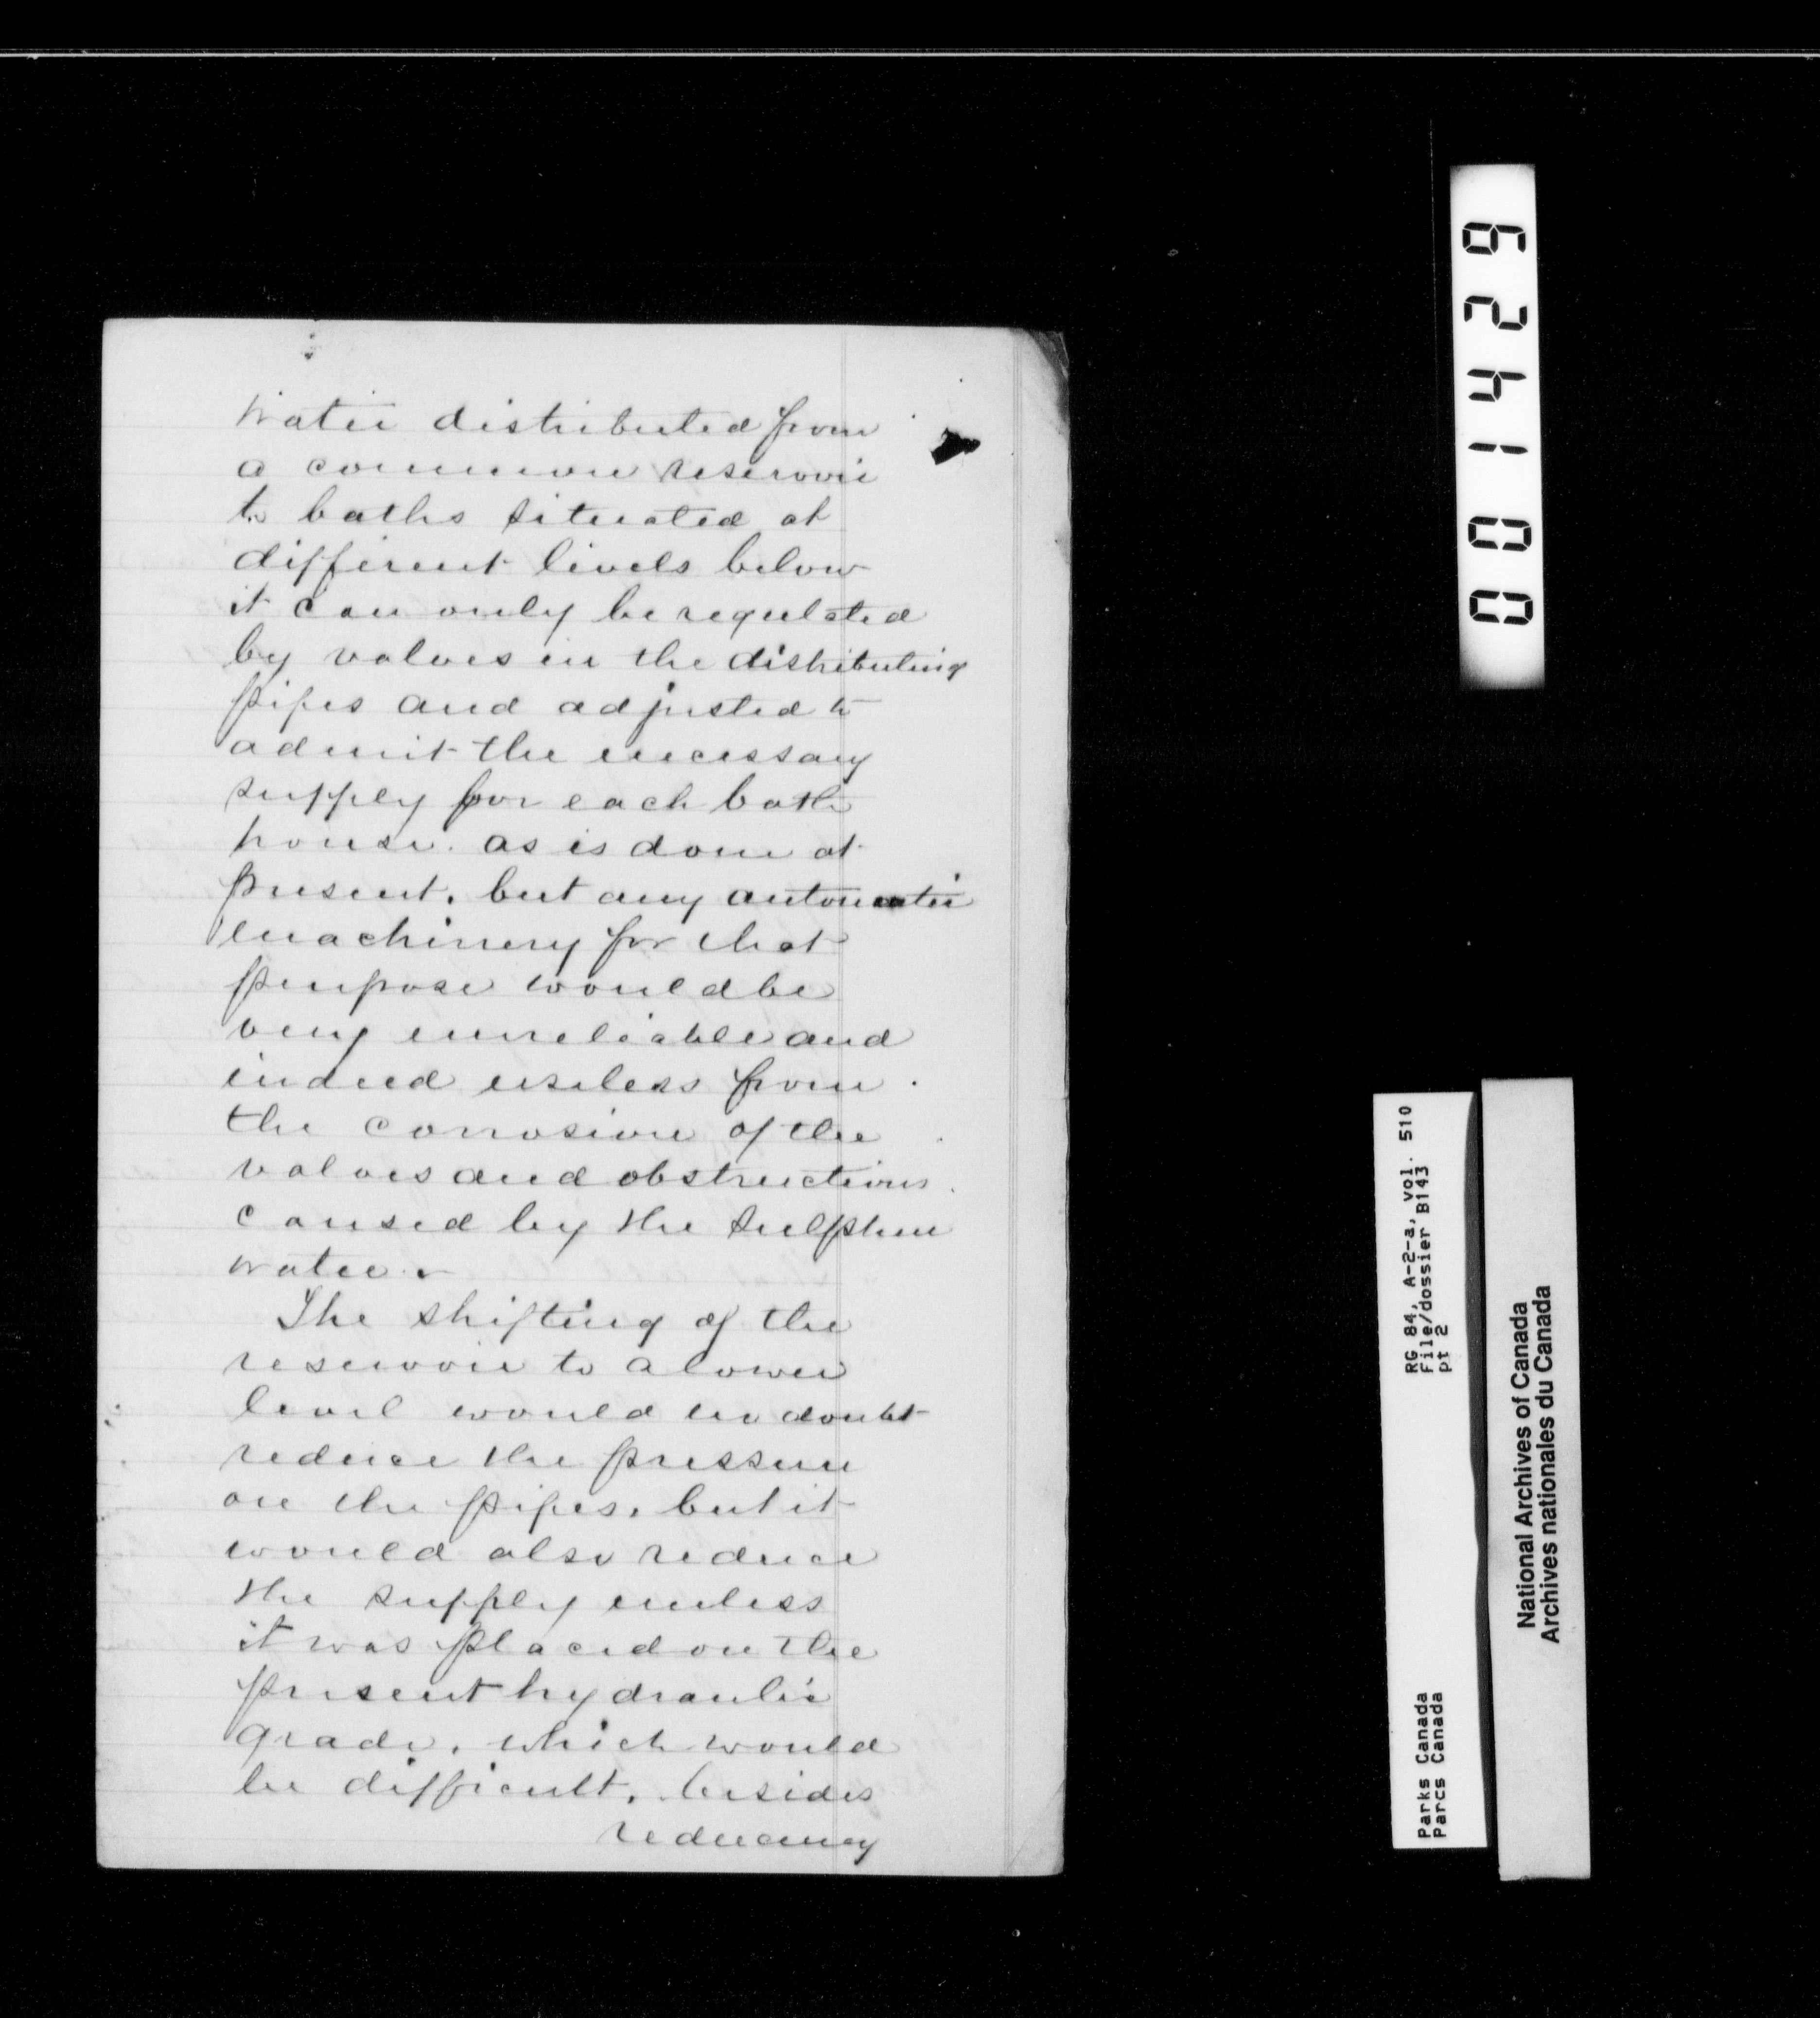 Water distributed from
a common reservoir
to baths situated at
different levels below
it can only be regulated
by valves in the distributing
pipes and adjusted to
admit the necessary
supply for each bath
house. as is done at
present, but any automatic
machinery for that
purpose would be
very unreliable and
indeed useless from
the corrosion of the
valves and obstructions
caused by the sulphur
water.
The shifting of the
reservoir to a lower
level would no doubt
reduce the pressure
on the pipes, but it
would also reduce
the supply unless
it was placed on the
present hydraulic
grade, which would
be difficult, besides
reducing
001429
RG 84, A-2-a, vol. 510
File/dossier B143
pt 2
Parks Canada
Parcs Canada
National Archives of Canada
Archives nationales du Canada